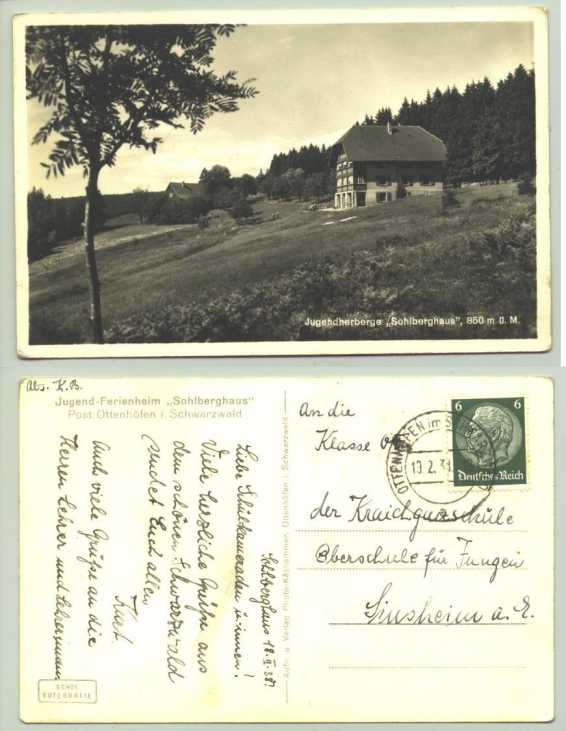 Jugendherberge „Sohlberghaus", 850 m ü. M.
Abs. K. B.
Jugend-Ferienheim „Sohlberghaus"
Post Ottenhöfen i. Schwarzwald
Sohlberghaus 18. II. 38!
Liebe Schulkameraden u. innen!
Viele herzliche Grüße aus
dem schönen Schwarzwald
sendet Euch allen
Kurt
Auch viele Grüße an die
Herren Lehrer und
Aufn. u. Verlag Photo-Käshammer, Ottenhöfen i. Schwarzwald
An die
Klasse
der Kraichgauschule
Oberschule für Jungen
Sinsheim a. E.
6 6
Deutsches Reich
OTTENHÖFEN im